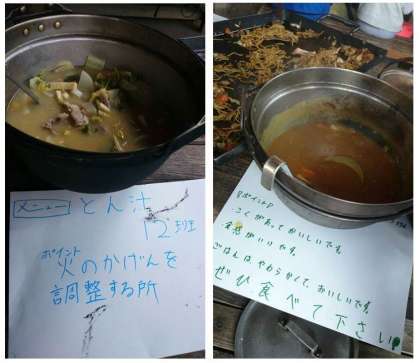 メニュー とん汁
12班
ポイント
火のかげんを
調整する所
ポイント
こくがあっておいしいです。
いいです。
ごはんはやわらかくて、おいしいです。
ぜひ食べて下さい!